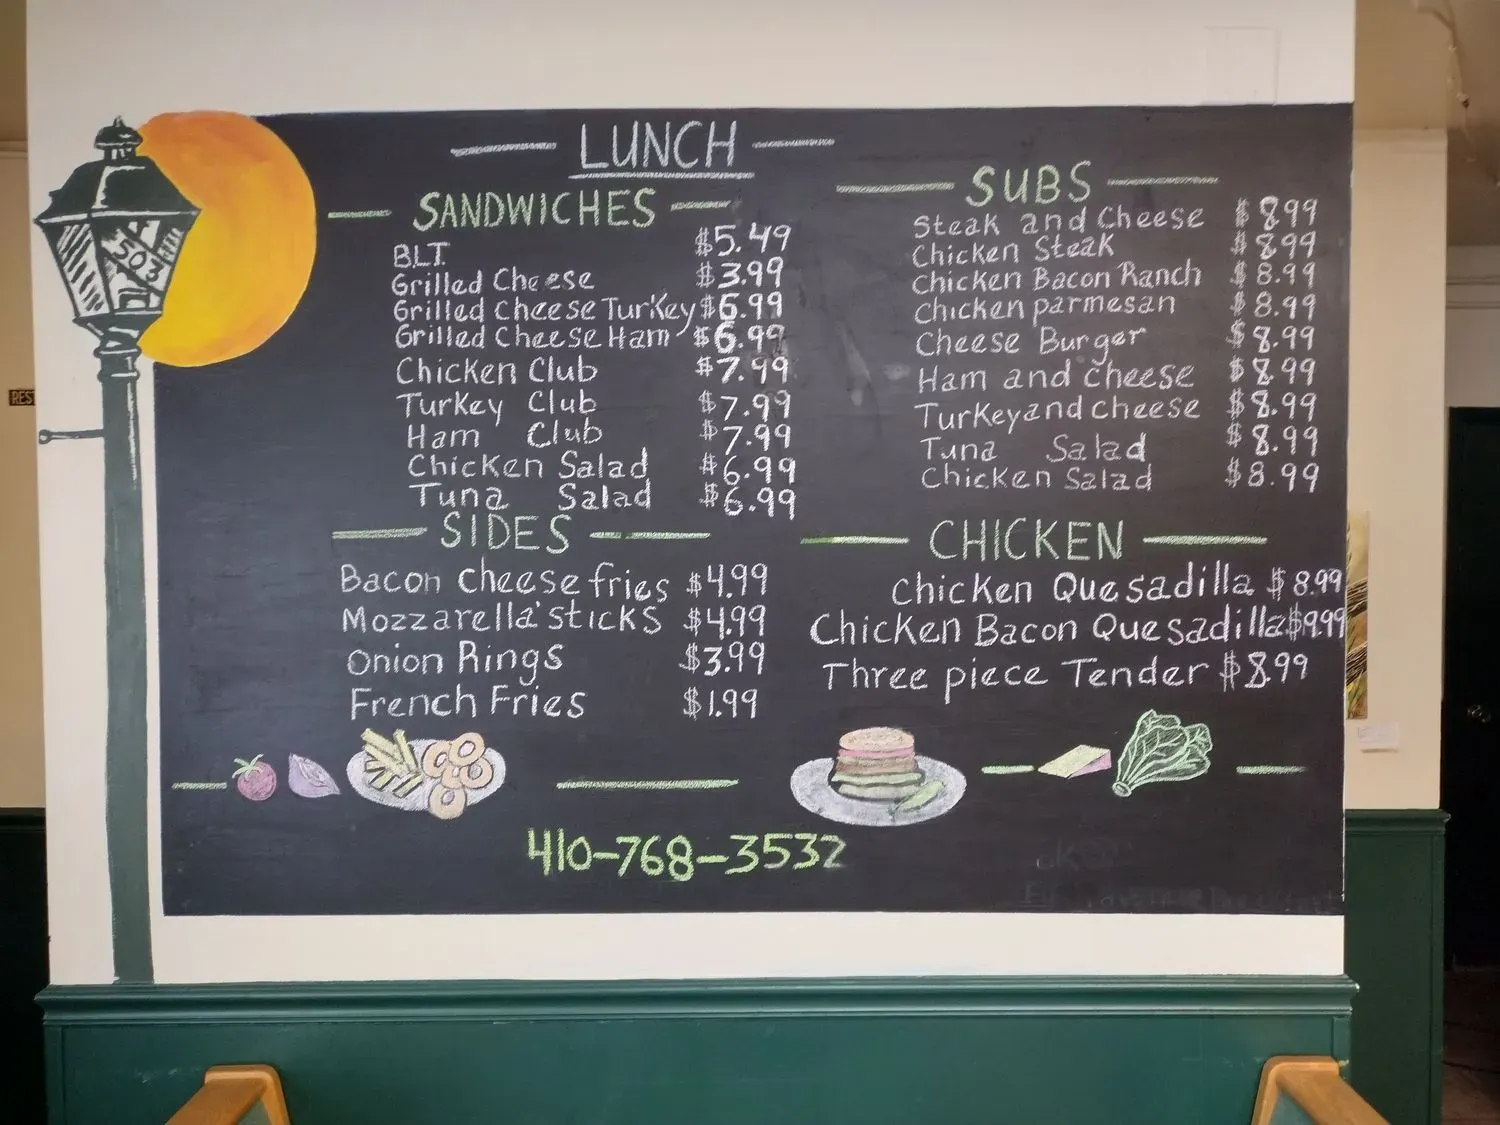 LUNCH
SANDWICHES
B.L.T. $5.49
Grilled Cheese $3.99
Grilled Cheese Turkey $6.99
Grilled Cheese Ham $6.99
Chicken Club $7.99
Turkey Club $7.99
Ham Club $7.99
Chicken Salad $6.99
Tuna Salad $6.99
SIDES
Bacon cheese fries $4.99
Mozzarella'sticks $4.99
Onion Rings $3.99
French Fries $1.99
SUBS
Steak and Cheese $8.99
Chicken Steak $8.99
Chicken Bacon Ranch $8.99
Chicken parmesan $8.99
Cheese Burger $8.99
Ham and cheese $8.99
Turkey and cheese $8.99
Tuna Salad $8.99
Chicken Salad $8.99
CHICKEN
Chicken Quesadilla $8.99
Chicken Bacon Quesadilla $9.99
Three piece Tender $8.99
410-768-3532
503
RES